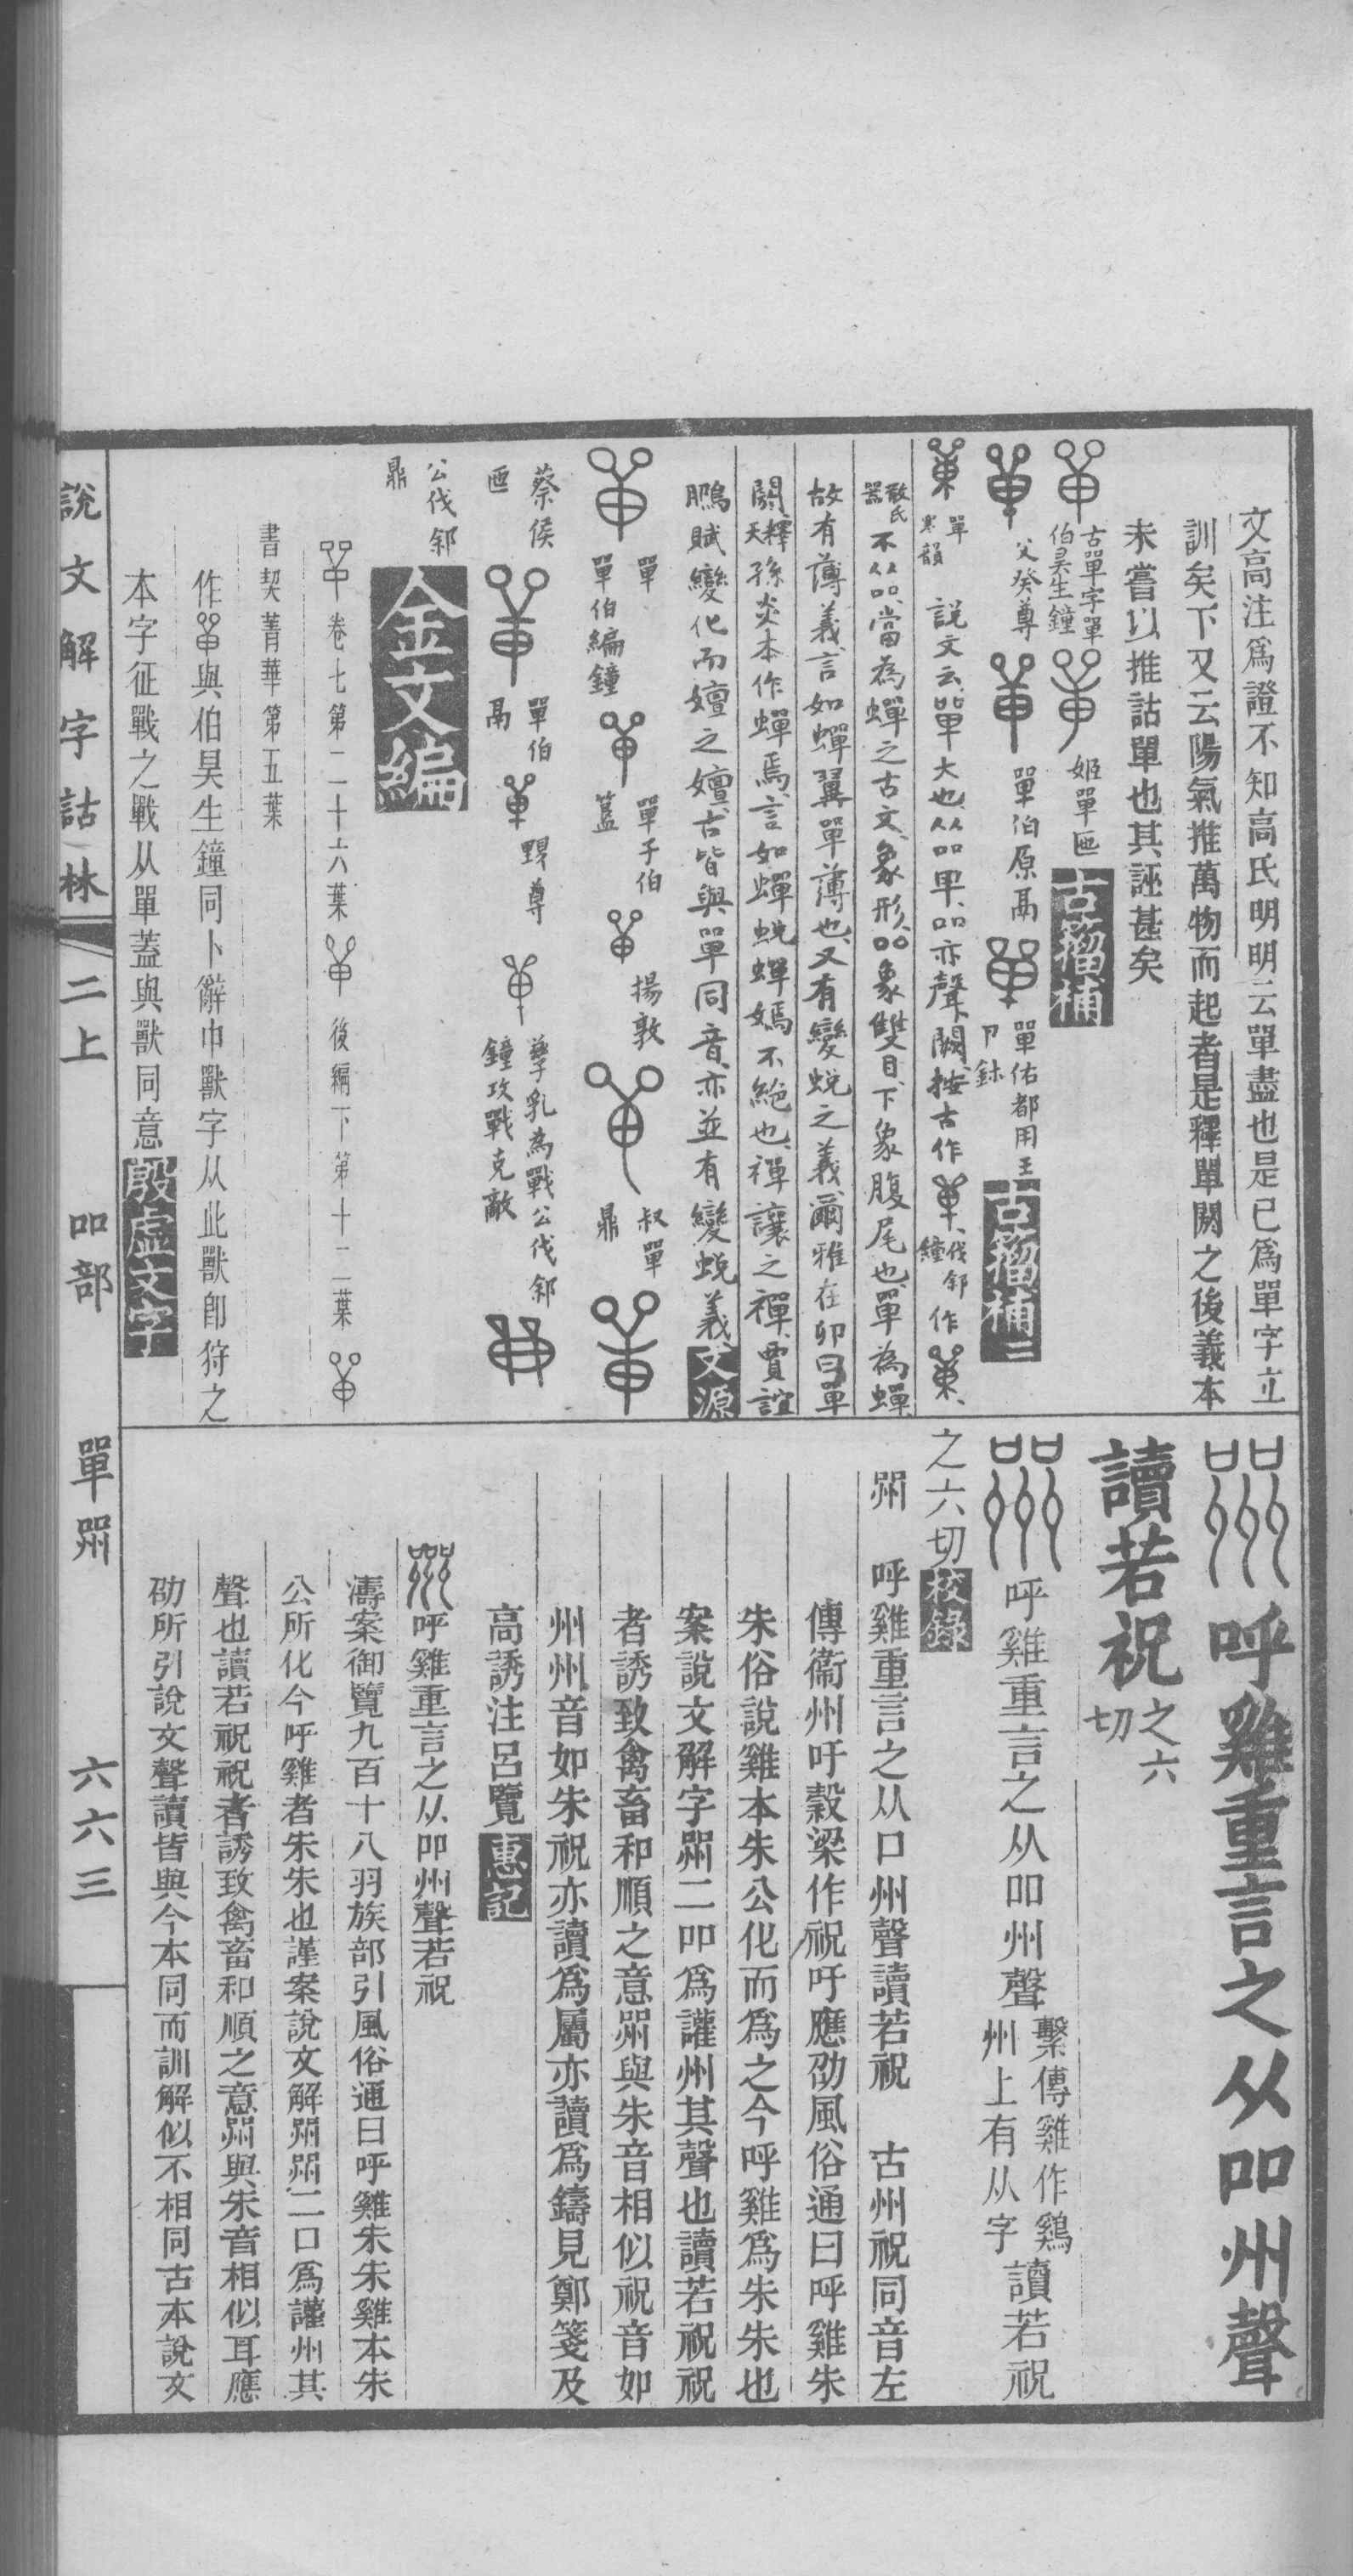 文高注爲證不知高氏明明云單盡也是已爲單字立
訓矣下又云陽氣推萬物而起者是釋單閼之後義本
未嘗以推詁單也其誣甚矣
古單字單伯昊生鐘 姬單匜 古籀補
父癸尊 單伯原鬲 單佑都用王卩鉢 古籀補二
單寒韻 說文云單大也从吅𠦒吅亦聲闕按古作 伐郐鐘 作
散氏器 不从吅當為蟬之古文象形吅象雙目下象腹尾也單為蟬
故有薄義言如蟬翼單薄也又有變蜕之義爾雅在卯曰單
閼釋天 孫炎本作蟬焉言如蟬蜕蟬嫣不絶也禪讓之禪賈誼
鵩賦變化而嬗之嬗古皆與單同音亦並有變蜕義 文源
單 單伯編鐘 單子伯簋 揚敦 叔單鼎
蔡侯匜 單伯鬲 𤲞尊 孳乳為戰公伐郐鐘攻戰克敵
公伐郐鼎 金文編
卷七第二十六葉 後編下第十二葉
書契菁華第五葉
作 與伯昊生鐘同卜辭中獸字从此獸卽狩之
本字征戰之戰从單蓋與獸同意 殷虛文字
呼雞重言之从吅州聲
讀若祝 之六切
呼雞重言之从吅州聲 繫傳雞作鷄州上有从字 讀若祝
之六切 校錄
喌 呼雞重言之从口州聲讀若祝 古州祝同音左
傳衞州吁穀梁作祝吁應劭風俗通曰呼雞朱
朱俗說雞本朱公化而爲之今呼雞爲朱朱也
案說文解字喌二吅爲讙州其聲也讀若祝祝
者誘致禽畜和順之意喌與朱音相似祝音如
州州音如朱祝亦讀爲屬亦讀爲鑄見鄭箋及
高誘注呂覽 惠記
呼雞重言之从吅州聲若祝
濤案御覽九百十八羽族部引風俗通曰呼雞朱朱雞本朱
公所化今呼雞者朱朱也謹案說文解喌喌二口爲讙州其
聲也讀若祝祝者誘致禽畜和順之意喌與朱音相似耳應
劭所引說文聲讀皆與今本同而訓解似不相同古本說文
說文解字詁林 二上 吅部 單喌 六六三